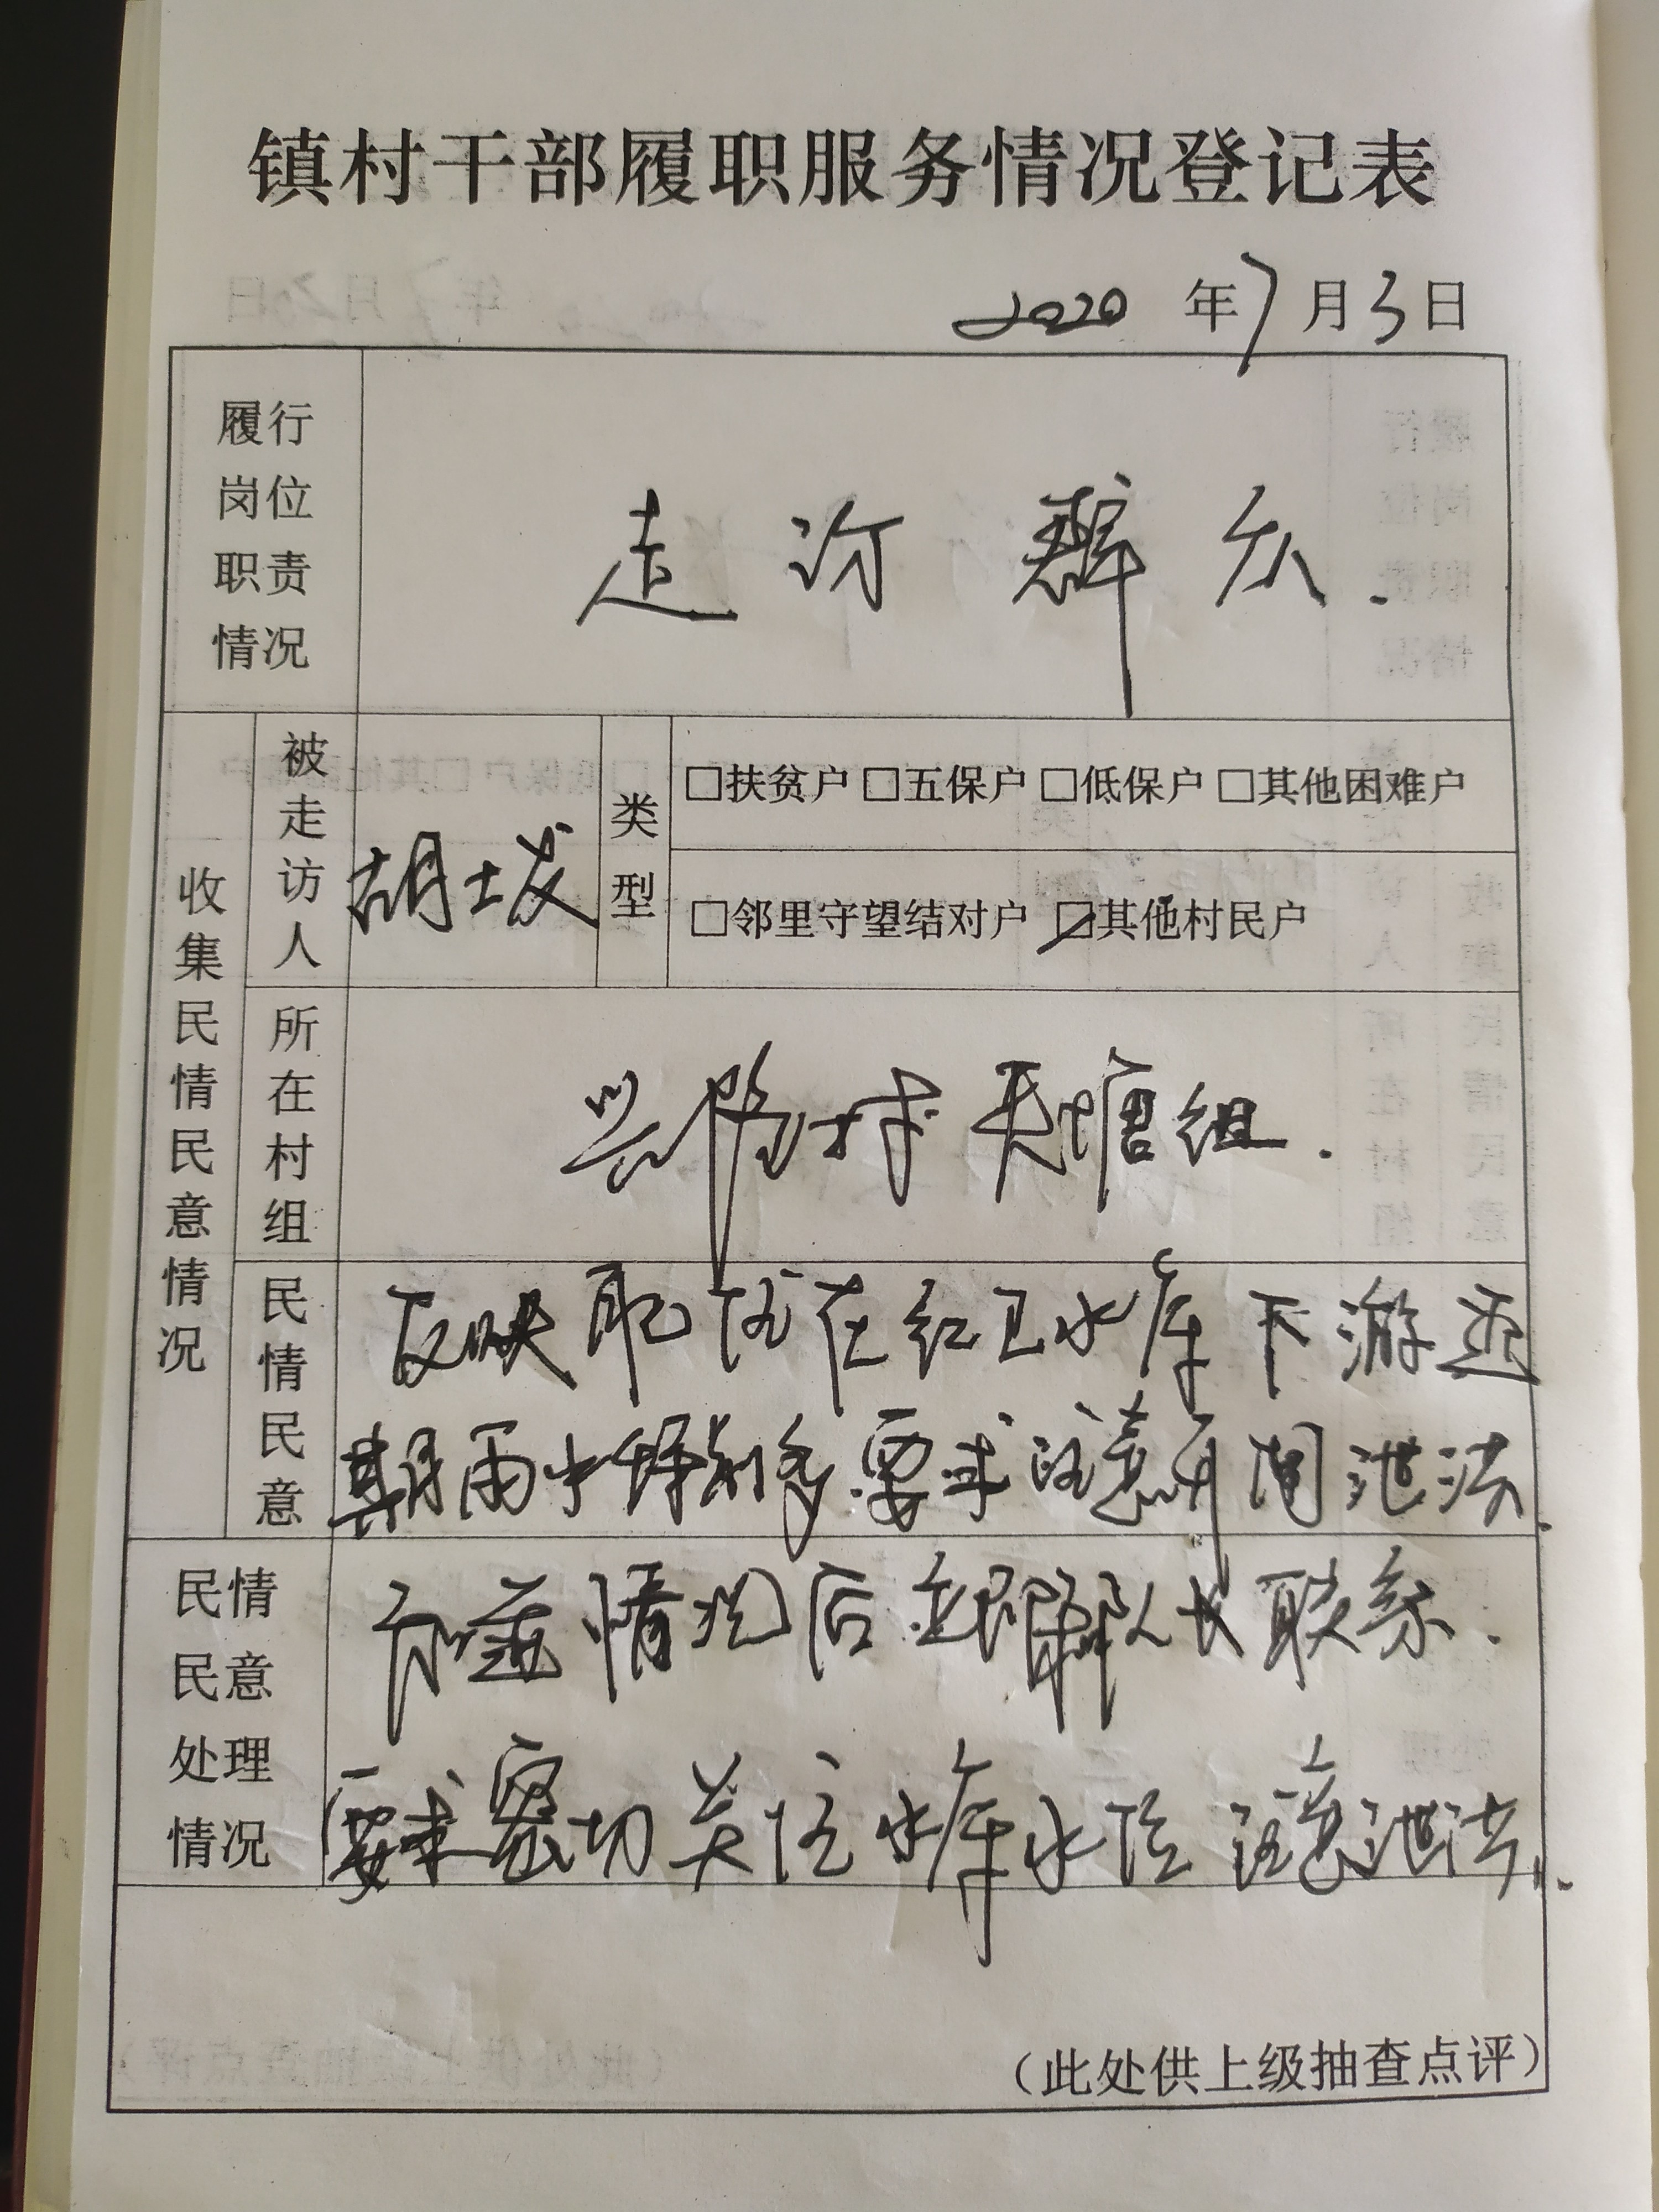 镇村干部履职服务情况登记表
2020年7月3日
履行岗位职责情况
走访群众.
收集民情民意情况
被走访人
胡士发
类型
□扶贫户 □五保户 □低保户 □其他困难户
□邻里守望结对户 ☑其他村民户
所在村组
兴隆村天塘组.
民情民意
反映现住在红卫水库下游近
期雨水特别多要求注意开闸泄洪.
民情民意处理情况
了解情况后立即跟队长联系.
要求密切关注水库水位注意泄洪.
（此处供上级抽查点评）